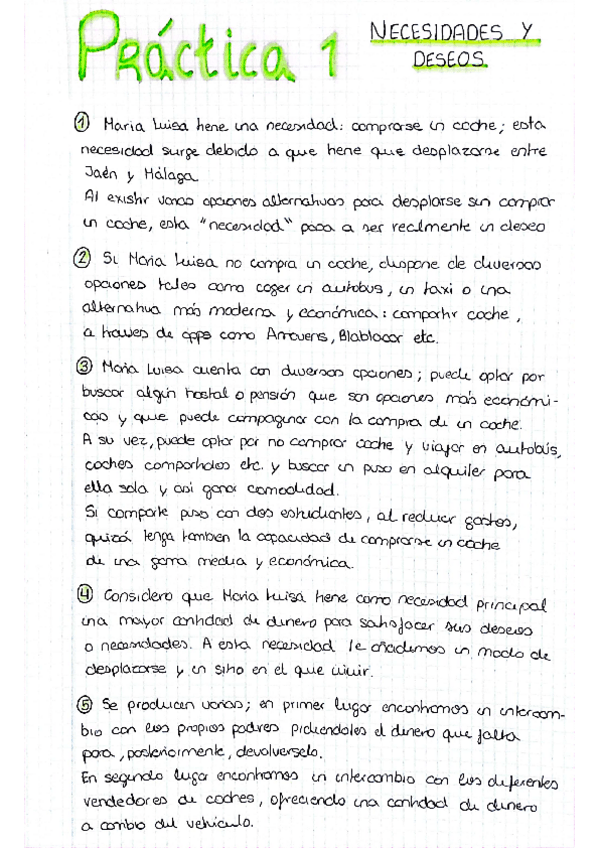 Práctica 1 NECESIDADES Y
DESEOS.
① Maria Luisa tiene una necesidad: comprarse un coche; esta
necesidad surge debido a que tiene que desplazarse entre
Jaén y Málaga
Al existir varias opciones alternativas para desplarse sin comprar
un coche, esta "necesidad" pasa a ser realmente un deseo
② Si Maria Luisa no compra un coche, dispone de diversas
opciones tales como coger un autobus, un taxi o una
alternativa más moderna y económica: compartir coche,
a traves de apps como Amovens, Blablacar etc.
③ Maria Luisa cuenta con diversas opciones; puede optar por
buscar algún hostal o pensión que son opciones más económi-
cas y que puede compaginar con la compra de un coche.
A su vez, puede optar por no comprar coche y viajar en autobús,
coches compartidos etc. y buscar un piso en alquiler para
ella sola y asi ganar comodidad.
Si comparte piso con dos estudiantes, al reducir gastos,
quizá tenga tambien la capacidad de comprarse un coche
de una gama media y económica.
④ Considero que Maria Luisa tiene como necesidad principal
una mayor cantidad de dinero para satisfacer sus deseos
o necesidades. A esta necesidad le añadimos un modo de
desplazarse y un sitio en el que vivir.
⑤ Se producen varios; en primer lugar encontramos un intercam-
bio con los propios padres pidiendoles el dinero que falta
para, posteriormente, devolverselo.
En segundo lugar encontramos un intercambio con los diferentes
vendedores de coches, ofreciendo una cantidad de dinero
a cambio del vehículo.